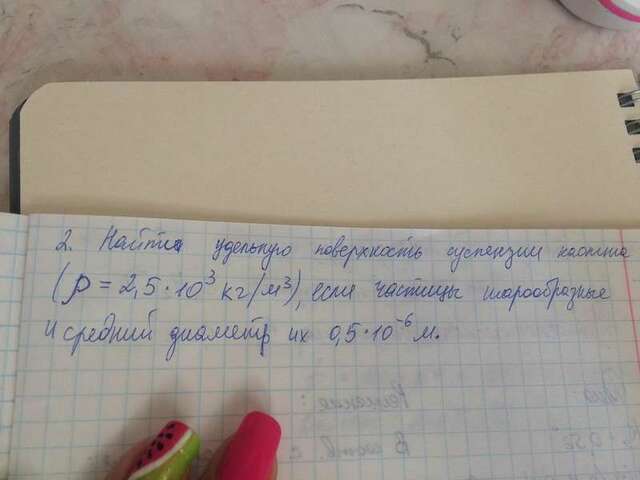 2. Найти удельную поверхность суспензии каолина
(ρ = 2,5·10³ кг/м³), если частицы шарообразные
и средний диаметр их 0,5·10⁻⁶ м.